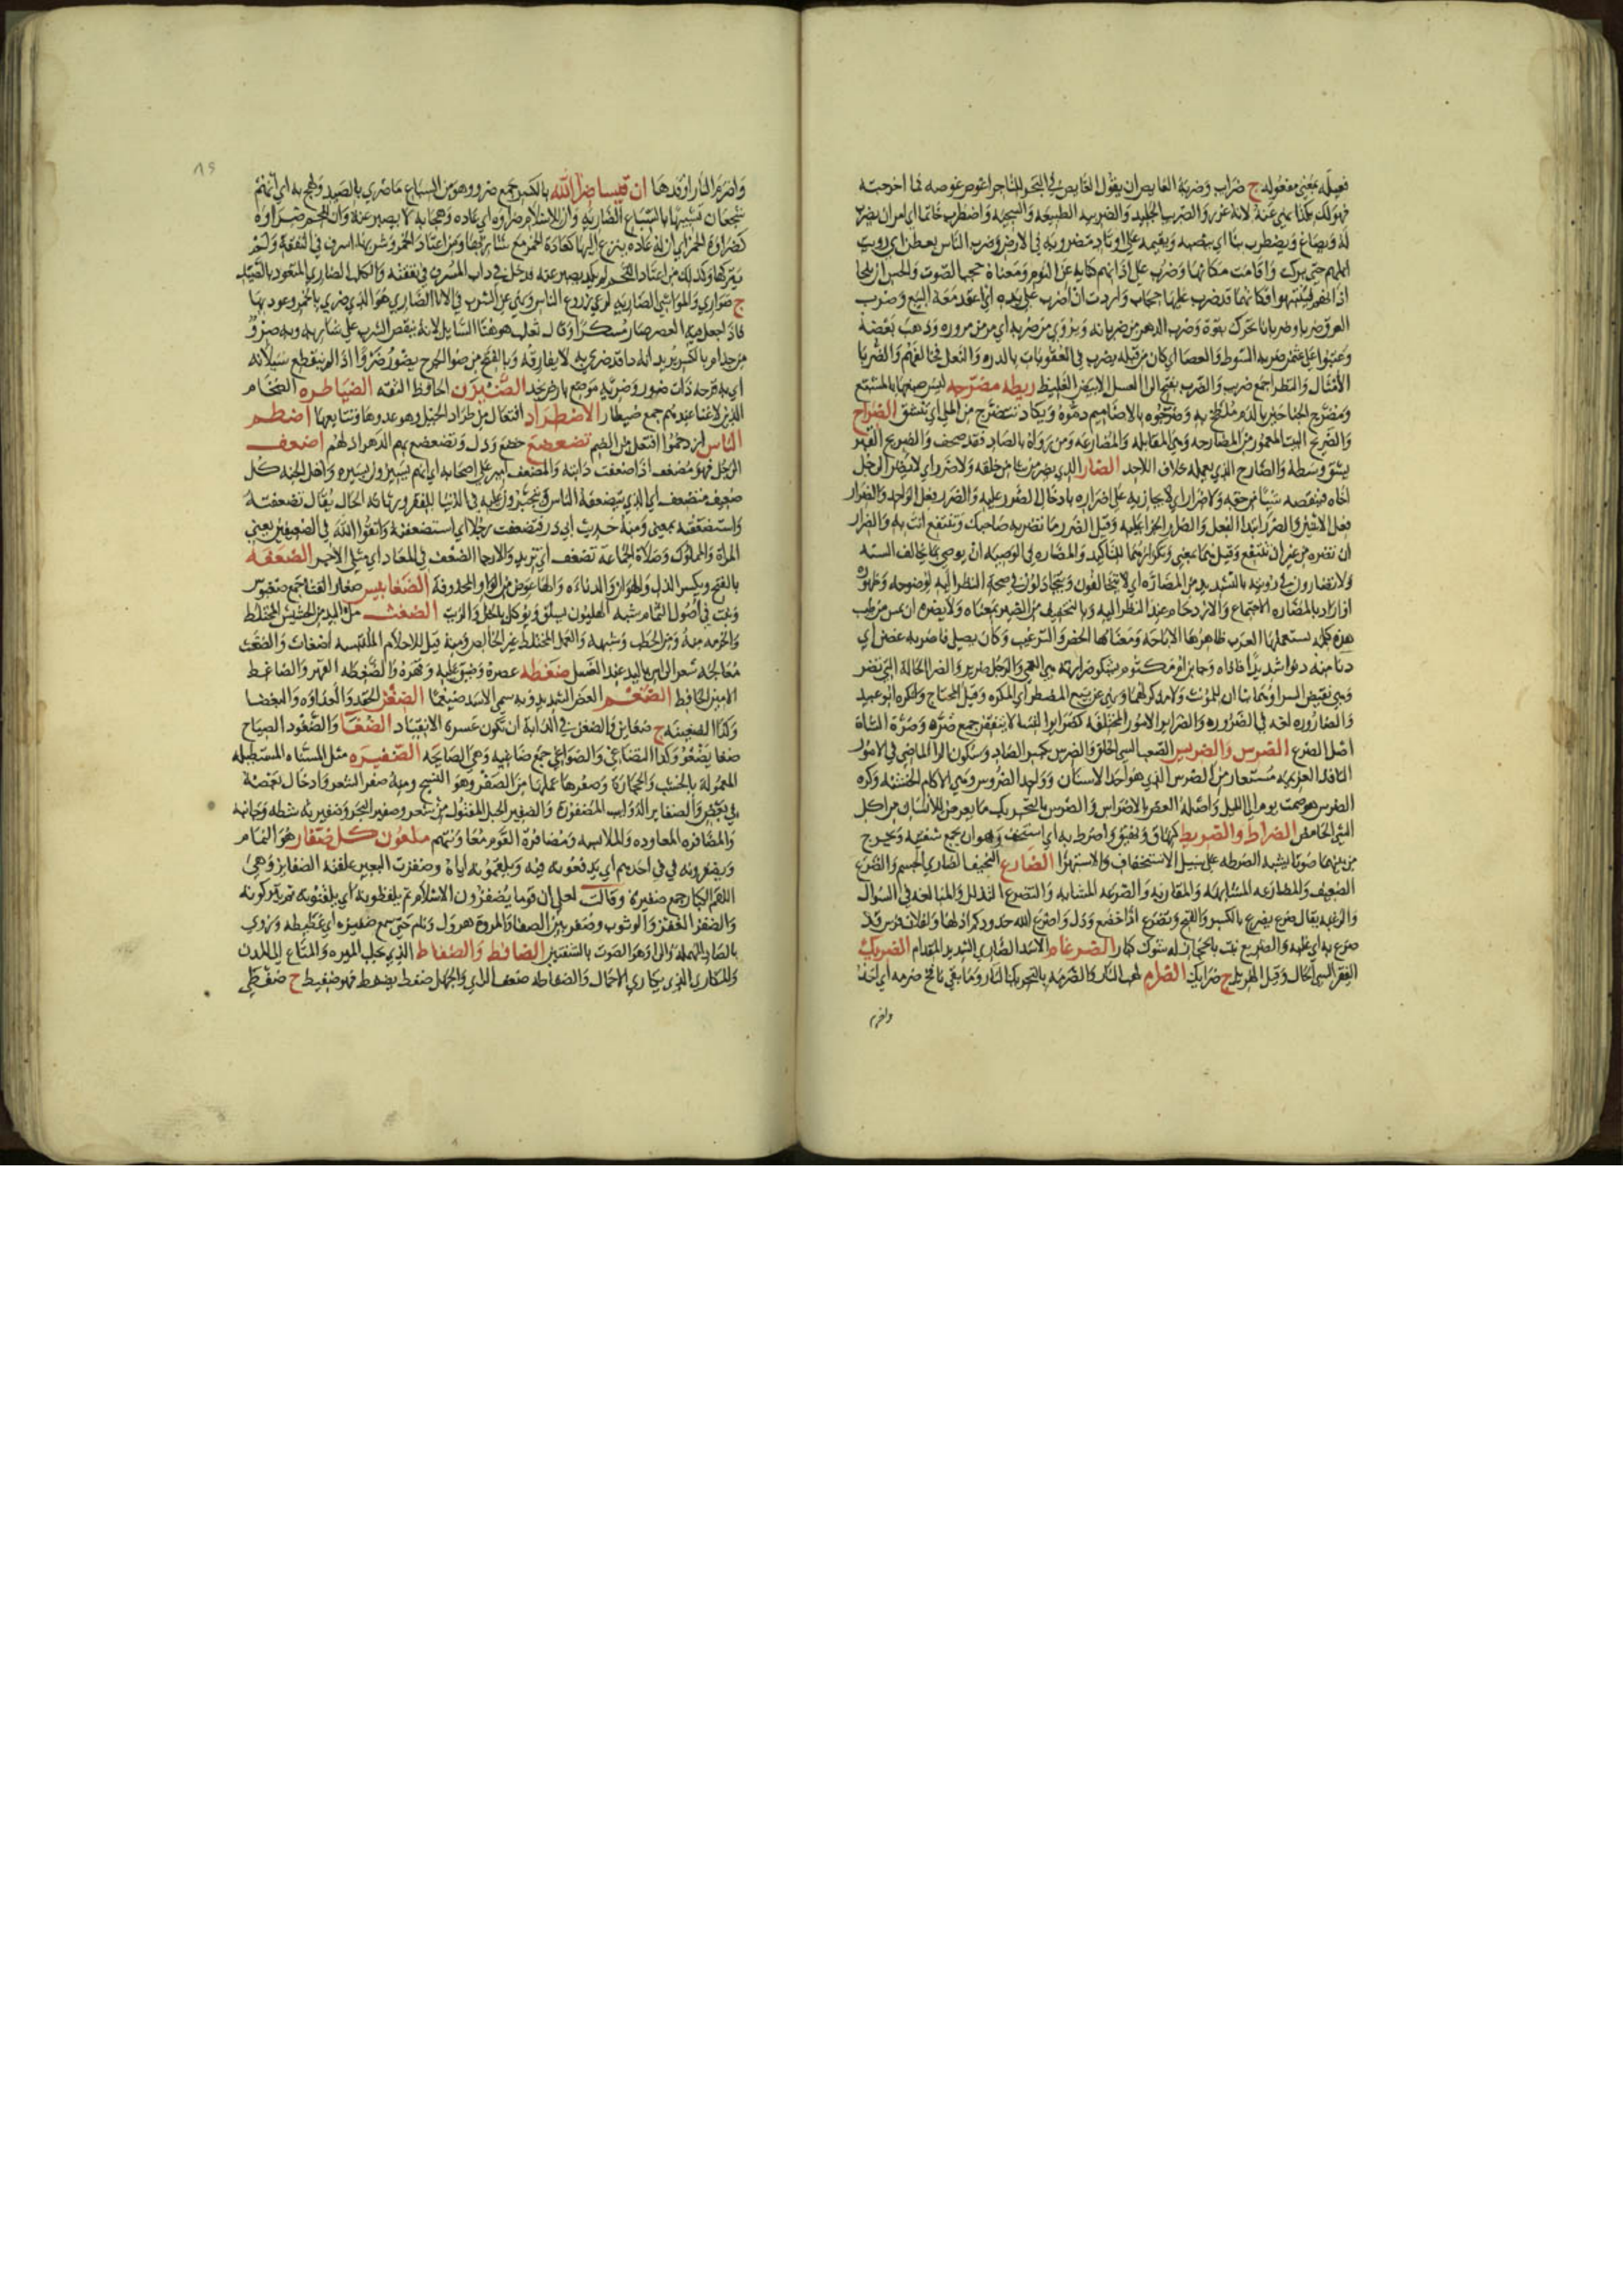 فعيله بمعنى مفعوله ج ضراب وضربة الغايص ان يقول الغايص في البحر للتاجر اغوص غوصه فما اخرجته
فهو لك بكذا نهي عنه لانه غرر والضرب الجليد والضريبه الطبيعه والسجيه واضطرب خاتما اي امر ان يضرب
له ويصاغ ويضطرب بنا اي ينصبه ويقيمه على اوتاد مضروبه في الارض وضرب الناس بعطن اي رويت
ابلهم حتى بركت واقامت مكانها وضرب على اذانهم كنايه عن النوم ومعناه حجب الصوت والحس ان يلجا
اذانهم فينتبهوا فكانها قد ضرب عليها حجاب واردت ان اضرب على يده اي اعقد معه البيع وضرب
العرق ضربا وضربانا تحرك بقوة وضرب الدهر من ضربانه ويروى من ضربه اي مر من مروره وذهب بعضه
وعتبوا على عثمن ضربه السوط والعصا اي كان من قبله يضرب في العقوبات بالدره والنعل فخالفهم والضربا
الامثال والنظرا جمع ضرب والضرب بفتح الرا العسل الابيض الغليظ ريطه مضرجه ليس صبغها بالمشبع
ومضرج الجناحين بالدم ملطخ به وضرجوه بالاضاميم دموه ويكاد تتضرج من الملي اي تنشق الضراح
والضريح البيت المعمور من المضارحه وهي المقابله والمضارعه ومن رواه بالصاد فقد صحف والضريح القبر
يشق وسطه والضارح الذي يعمله خلاف اللاحد الضار الذي يضر من شا من خلقه ولا ضرر اي لا يضر الرجل
اخاه فينقصه شيئا من حقه ولا ضرار اي لا يجازيه على اضراره بادخال الضرر عليه والضرر فعل الواحد والضرار
فعل الاثنين والضرر ابتدا الفعل والضرار الجزا عليه وقيل الضرر ما تضر به صاحبك وتنتفع انت به والضرار
ان تضره من غير ان تنتفع وقيل هما بمعنى وتكرارهما للتاكيد والمضاره في الوصيه ان يوصي بما يخالف السنه
ولا تضارون في رؤيته بالتشديد من المضاره اي لا تتخالفون وتتجادلون في صحة النظر اليه لوضوحه وظهوره
او اراد بالمضاره الاجتماع والازدحام عند النظر اليه وبالتخفيف من الضير بمعناه ولا يضره ان يمس من طيب
هذه كلمه تستعملها العرب ظاهرها الاباحه ومعناها الحض والترغيب وكان يصلي فاضر به غصن اي
دنا منه دنوا شديدا فاذاه وجا ابن ام مكتوم يشكو ضرارته هي العمى والرجل ضرير والضرا الحالة التي تضر
وهي نقيض السرا وهما بناان للمونث ولا مذكر لهما ونهى عن بيع المضطر اي المكره وقيل المحتاج وانكره ابو عبيد
والضاروره لغه في الضروره والضراير الامور المختلفه كضراير النسا لا يتفقن جمع ضره وضرة الشاة
اصل الضرع الضرس والضريس الصعب السي الخلق والضرس بكسر الضاد وسكون الرا الماضي في الامور
النافذ العزيمه مستعار من الضرس الذي هو احد الاسنان وواحد الضروس وهي الاكام الخشنه وكره
الضرس هو صمت يوم الى الليل واصله العض بالاضراس والضرس بالتحريك ما يعرض للاسنان من اكل
الشي الحامض الضراط والضريط كنهاق ونهيق واضرط به اي استخف وهو ان يجمع شفتيه ويخرج
من بينهما صوتا يشبه الضرطه على سبيل الاستخفاف والاستهزا الضارع النحيف الضاوي الجسم والضرع
الضعيف والمضارعه المشابهه والمقاربه والضرعه المشابه والتضرع التذلل والمبالغه في السوال
والرغبه يقال ضرع يضرع بالكسر والفتح وتضرع اذا خضع وذل واضرع الله خدودكم اذلها ولفلان فرس قد
ضرع به اي غلبه والضريع نبت بالحجاز له شوك كبار الضرغام الاسد الضاري الشديد المقدام الضريك
الفقير السي الحال وقيل الهزيل ج ضرايك الضرام لهب النار والضرمه بالتحريك النار وما بقي نافخ ضرمه اي احد
واضرم
٨٩
واضرم النار اوقدها ان قيسا ضرا الله بالكسر جمع ضرو وهو من السباع ما ضري بالصيد ولهج به اي انهم
شجعان تشبيها بالسباع الضاريه وان للاسلام ضراوه اي عاده ولهجا به لا يصبر عنه وان للحم ضراوه
كضراوة الخمر اي ان له عاده ينزع اليها كعادة الخمر مع شاربها ومن اعتاد الخمر وشربها اسرف في النفقه ولم
يتركها وكذلك من اعتاد اللحم لم يكد يصبر عنه فدخل في داب المسرف في نفقته والكلب الضاري المتعود بالصيد
ج ضواري والمواشي الضاريه لرعي زروع الناس ونهى عن الشرب في الانا الضاري هو الذي ضري بالخمر وعود بها
فاذا جعل فيه العصير صار مسكرا وقال ثعلب هو هنا السايل لانه ينقص الشرب على شاربه وبه ضرو
من جذام بالكسر يريد انه دا قد ضري به لا يفارقه وبالفتح من ضرا الجرح يضرو ضروا اذا لم ينقطع سيلانه
اي به قرحه ذات ضرو وضريه موضع بارض نجد الضيزن الحافظ الثقه الضياطره الضخام
الذين لا غنا عندهم جمع ضيطار الاضطراد افتعال من طراد الخيل وهو عدوها وتتابعها اضطم
الناس ازدحموا افتعل من الضم تضعضع خضع وذل وتضعضع بهم الدهر اذلهم اضعف
الرجل فهو مضعف اذا ضعفت دابته والمضعف امير على اصحابه اي انهم يسيرون بسيره واهل الجنه كل
ضعيف متضعف اي الذي يتضعفه الناس ويتجبرون عليه في الدنيا للفقر ورثاثه الحال يقال تضعفته
واستضعفته بمعنى ومنه حديث ابي ذر فتضعفت رجلا اي استضعفته واتقوا الله في الضعيفين يعني
المراة والمملوك وصلاة الجماعة تضعف اي تزيد والارجا الضعف في المعاد اي مثلي الاجر الضعفه
بالفتح ويكسر الذل والهوان والدناءه والها عوض من الواو المحذوفه الضغابيس صغار القثا جمع ضغبوس
ونبت في اصول الثمام شبه الهليون يسلق ويوكل بالخل والزيت الضغث مل اليد من الحشيش المختلط
والحزمه منه ومن الحطب وشبهه والعمل المختلط غير الخالص ومنه قيل للاحلام الملتبسه اضغاث والضغث
معالجه شعر الراس باليد عند الغسل ضغطه عصره وضيق عليه وقهره والضغطه القهر والضاغط
الامين الحافظ الضغم العض الشديد وبه سمي الاسد ضيغما الضغن الحقد والعداوه والبغضا
وكذا الضغينه ج ضغاين والضغن في الدابه ان تكون عسرة الانقياد الضغا والضغو الصياح
ضغا يضغو وكذا التضاغي والضواغي جمع ضاغيه وهي الصايحه الضفيره مثل المسناه المستطيله
المعموله بالخشب والحجاره وضفرها عملها من الضفر وهو النسج ومنه ضفر الشعر وادخال بعضه
في بعض والضفاير الذوايب المضفوره والضفير الحبل المفتول من شعر وضفير البحر وضفيره شطه وجانبه
والمضافره المعاوده والملابسه وتضافر القوم معا وتنهم ملعون كل ضفار هو النمام
ويضفزونه في في احدهم اي يدفعونه فيه ويلقمونه اياه وضفزت البعير علفته الضفايز وهي
اللقم الكبار جمع ضفيزه وقالت لعل ان قوما يضفزون الاسلام ثم يلفظونه اي يلقنونه ثم يتركونه
والضفز القفز والوثوب وضفز بين الصفا والمروه هرول ونام حتى سمع ضفيزه اي غطيطه ويروى
بالصاد المهمله والرا وهو الصوت بالشفتين الضافط والضفاط الذي يجلب الميره والمتاع الى المدن
والمكاري الذي يكاري الاحمال والضفاطه ضعف الراي والجهل ضفط يضفط فهو ضفيط ج ضفطى